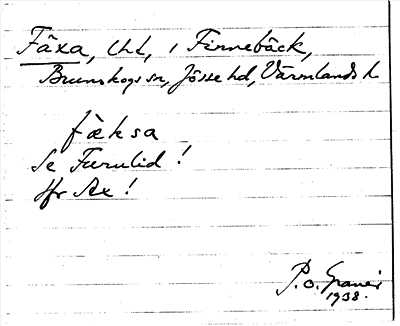 Fäxa, lht, i Finnebäck,
Brunskogs sn, Jösse hd, Värmlands l.
fèksa
Se Furulid!
Jfr Ax!
P. O. Graner
1938.